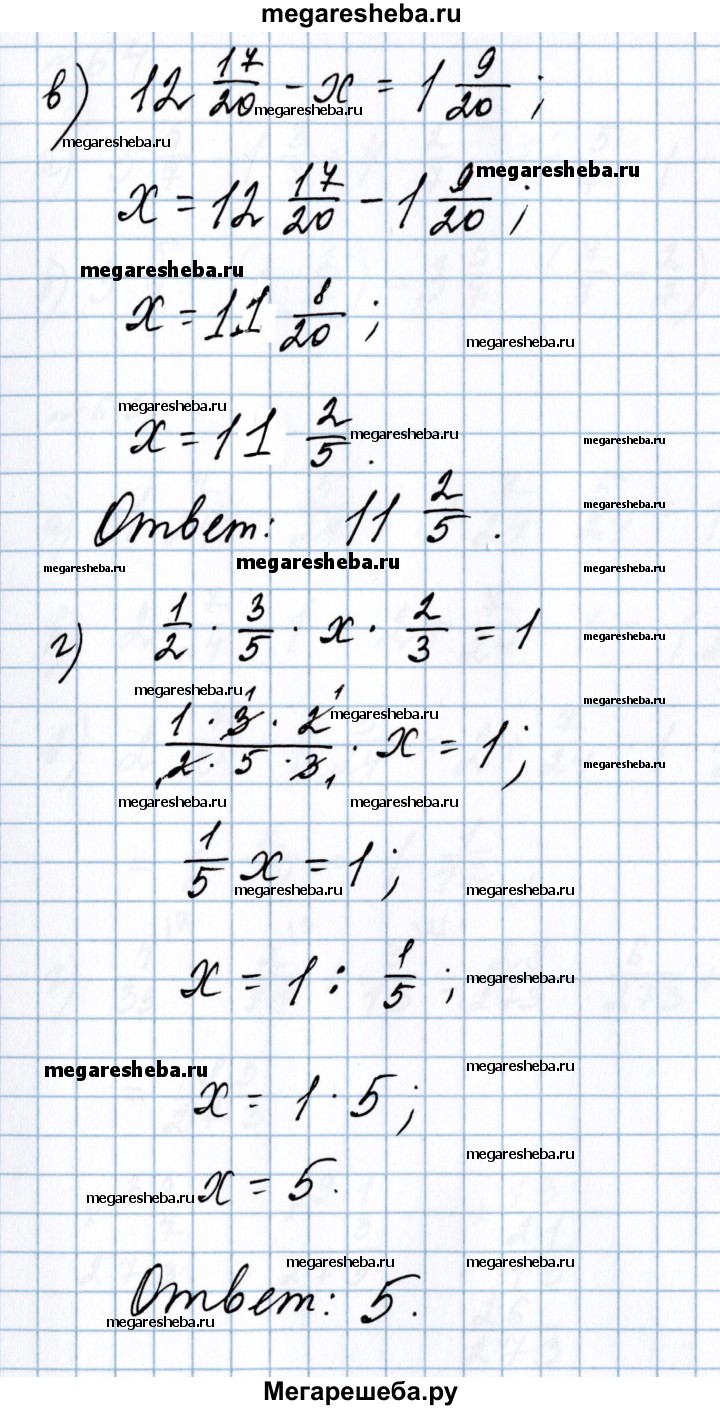 megaresheba.ru
в) 12 17/20 - x = 1 9/20 ;
megaresheba.ru
megaresheba.ru
megaresheba.ru
x = 12 17/20 - 1 9/20 ;
megaresheba.ru
x = 11 8/20 ;
megaresheba.ru
megaresheba.ru
x = 11 2/5 .
megaresheba.ru
megaresheba.ru
Ответ: 11 2/5 .
megaresheba.ru
megaresheba.ru
megaresheba.ru
megaresheba.ru
г) 1/2 · 3/5 · x · 2/3 = 1
megaresheba.ru
megaresheba.ru
megaresheba.ru
megaresheba.ru
1 · 3 · 2 / 2 · 5 · 3 · x = 1 ;
1 1
1 1
megaresheba.ru
megaresheba.ru
megaresheba.ru
1/5 x = 1 ;
megaresheba.ru
megaresheba.ru
x = 1 : 1/5 ;
megaresheba.ru
megaresheba.ru
megaresheba.ru
x = 1 · 5 ;
megaresheba.ru
megaresheba.ru
x = 5 .
megaresheba.ru
megaresheba.ru
Ответ: 5 .
megaresheba.ru
Мегарешеба.ру